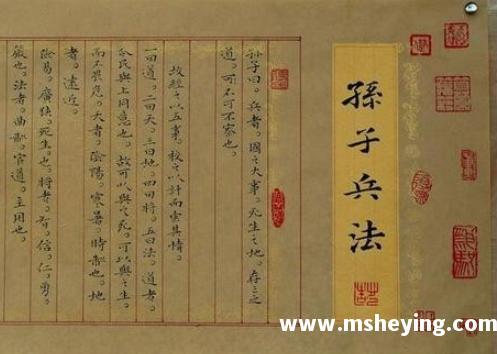 孫子兵法
孫子曰。兵者。國之大事。死生之地。存亡之
道。可不可不察也。
故經之以五事。校之以計而索其情。
一曰道。二曰天。三曰地。四曰將。五曰法。道者。
令民與上同意也。故可以與之死。可以與之生。
而不畏危。天者。陰陽。寒暑。時制也。地
者。遠近。
險易。廣狹。死生也。將者。智。信。仁。勇。
嚴也。法者。曲制。官道。主用也。
www.msheying.com